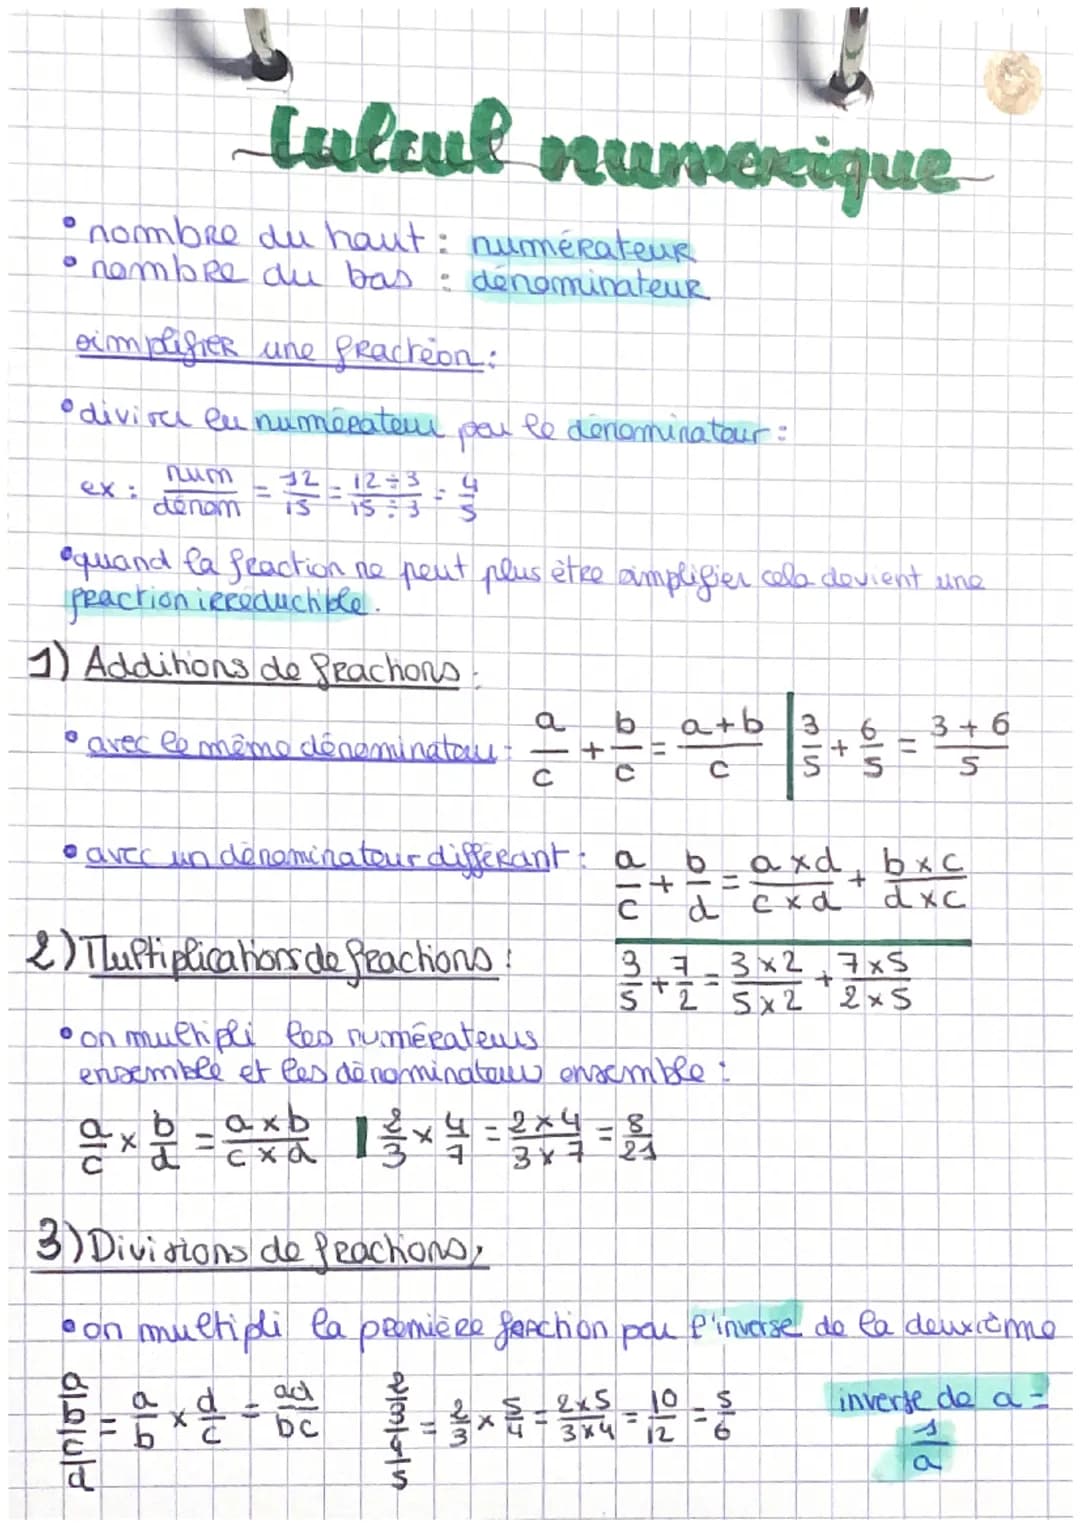 Calcul numerique
• nombre du haut : numérateur
• nombre du bas : dénominateur
simplifier une fraction :
• diviser le numérateur par le dénominateur :
ex : num/dénom = 12/15 = 12÷3/15÷3 = 4/5
• quand la fraction ne peut plus être simplifier cela devient une
fraction irréductible.
1) Additions de fractions :
• avec le même dénominateur : a/c + b/c = a+b/c | 3/5 + 6/5 = 3+6/5
• avec un dénominateur différant : a/c + b/d = a×d/c×d + b×c/d×c
3/5 + 7/2 = 3×2/5×2 + 7×5/2×5
2) Multiplications de fractions :
• on multipli les numérateurs
ensemble et les dénominateurs ensemble :
a/c × b/d = a×b/c×d | 2/3 × 4/7 = 2×4/3×7 = 8/21
3) Divisions de fractions,
• on multipli la première fraction par l'inverse de la deuxième
a/b/c/d = a/b × d/c = ad/bc 2/3/4/5 = 2/3 × 5/4 = 2×5/3×4 = 10/12 = 5/6 inverse de a = 1/a